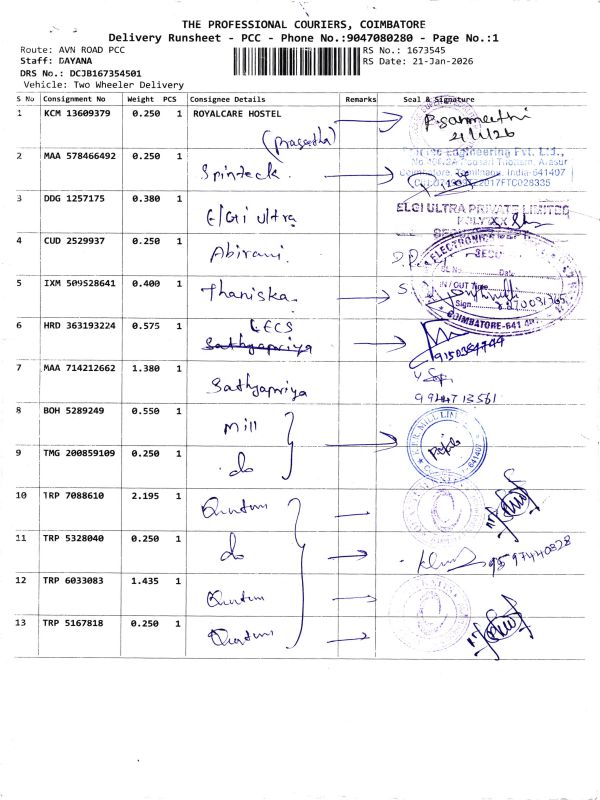 THE PROFESSIONAL COURIERS, COIMBATORE
Delivery Runsheet - PCC - Phone No.:9047080280 - Page No.:1
Route: AVN ROAD PCC
RS No.: 1673545
Staff: DAYANA
RS Date: 21-Jan-2026
DRS No.: DCJB167354501
Vehicle: Two Wheeler Delivery
S No Consignment No Weight PCS Consignee Details Remarks Seal & Signature
1 KCM 13609379 0.250 1 ROYALCARE HOSTEL
(Praseetha)
21/1/26
2 MAA 578466492 0.250 1 Spinteck.
Engineering Pvt. Ltd.,
Coimbatore, Tamilnadu, India-641407
3 DDG 1257175 0.380 1 Elgi ultra
ELGI ULTRA PRIVATE LIMITED
4 CUD 2529937 0.250 1 Abirami.
ELECTRONICS
Date
5 IXM 509528641 0.400 1 Thaniska.
IN / OUT Time
Sign
COIMBATORE-641 407
6 HRD 363193224 0.575 1 LECS
Sathyapriya
7 MAA 714212662 1.380 1 Sathyapriya
9944713561
8 BOH 5289249 0.550 1 Mill
MILL
9 TMG 200859109 0.250 1 do
641407
10 TRP 7088610 2.195 1 Quantum
11 TRP 5328040 0.250 1 do
9597440828
12 TRP 6033083 1.435 1 Quantum
13 TRP 5167818 0.250 1 Quantum